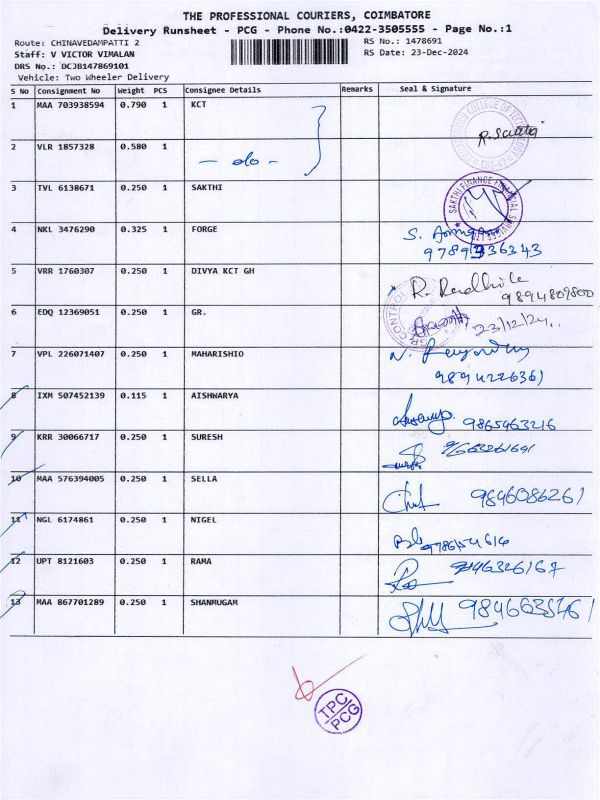 THE PROFESSIONAL COURIERS, COIMBATORE
Delivery Runsheet - PCG - Phone No.:0422-3505555 - Page No.:1
Route: CHINAVEDAMPATTI 2
RS No.: 1478691
Staff: V VICTOR VIMALAN
RS Date: 23-Dec-2024
DRS No.: DCJB147869101
Vehicle: Two Wheeler Delivery
S No Consignment No Weight PCS Consignee Details Remarks Seal & Signature
1 MAA 703938594 0.790 1 KCT
2 VLR 1857328 0.580 1 - do -
3 TVL 6138671 0.250 1 SAKTHI
SAKTHI FINANCE FINANCIAL SERVICES LTD
4 NKL 3476290 0.325 1 FORGE
5 VRR 1760307 0.250 1 DIVYA KCT GH
9894809800
6 EDQ 12369051 0.250 1 GR.
23/12/24
7 VPL 226071407 0.250 1 MAHARISHIO
9894226361
8 IXM 507452139 0.115 1 AISHWARYA
9865463216
9 KRR 30066717 0.250 1 SURESH
10 MAA 576394005 0.250 1 SELLA
9846086261
11 NGL 6174861 0.250 1 NIGEL
12 UPT 8121603 0.250 1 RAMA
13 MAA 867701289 0.250 1 SHANMUGAM
TPC
PCG